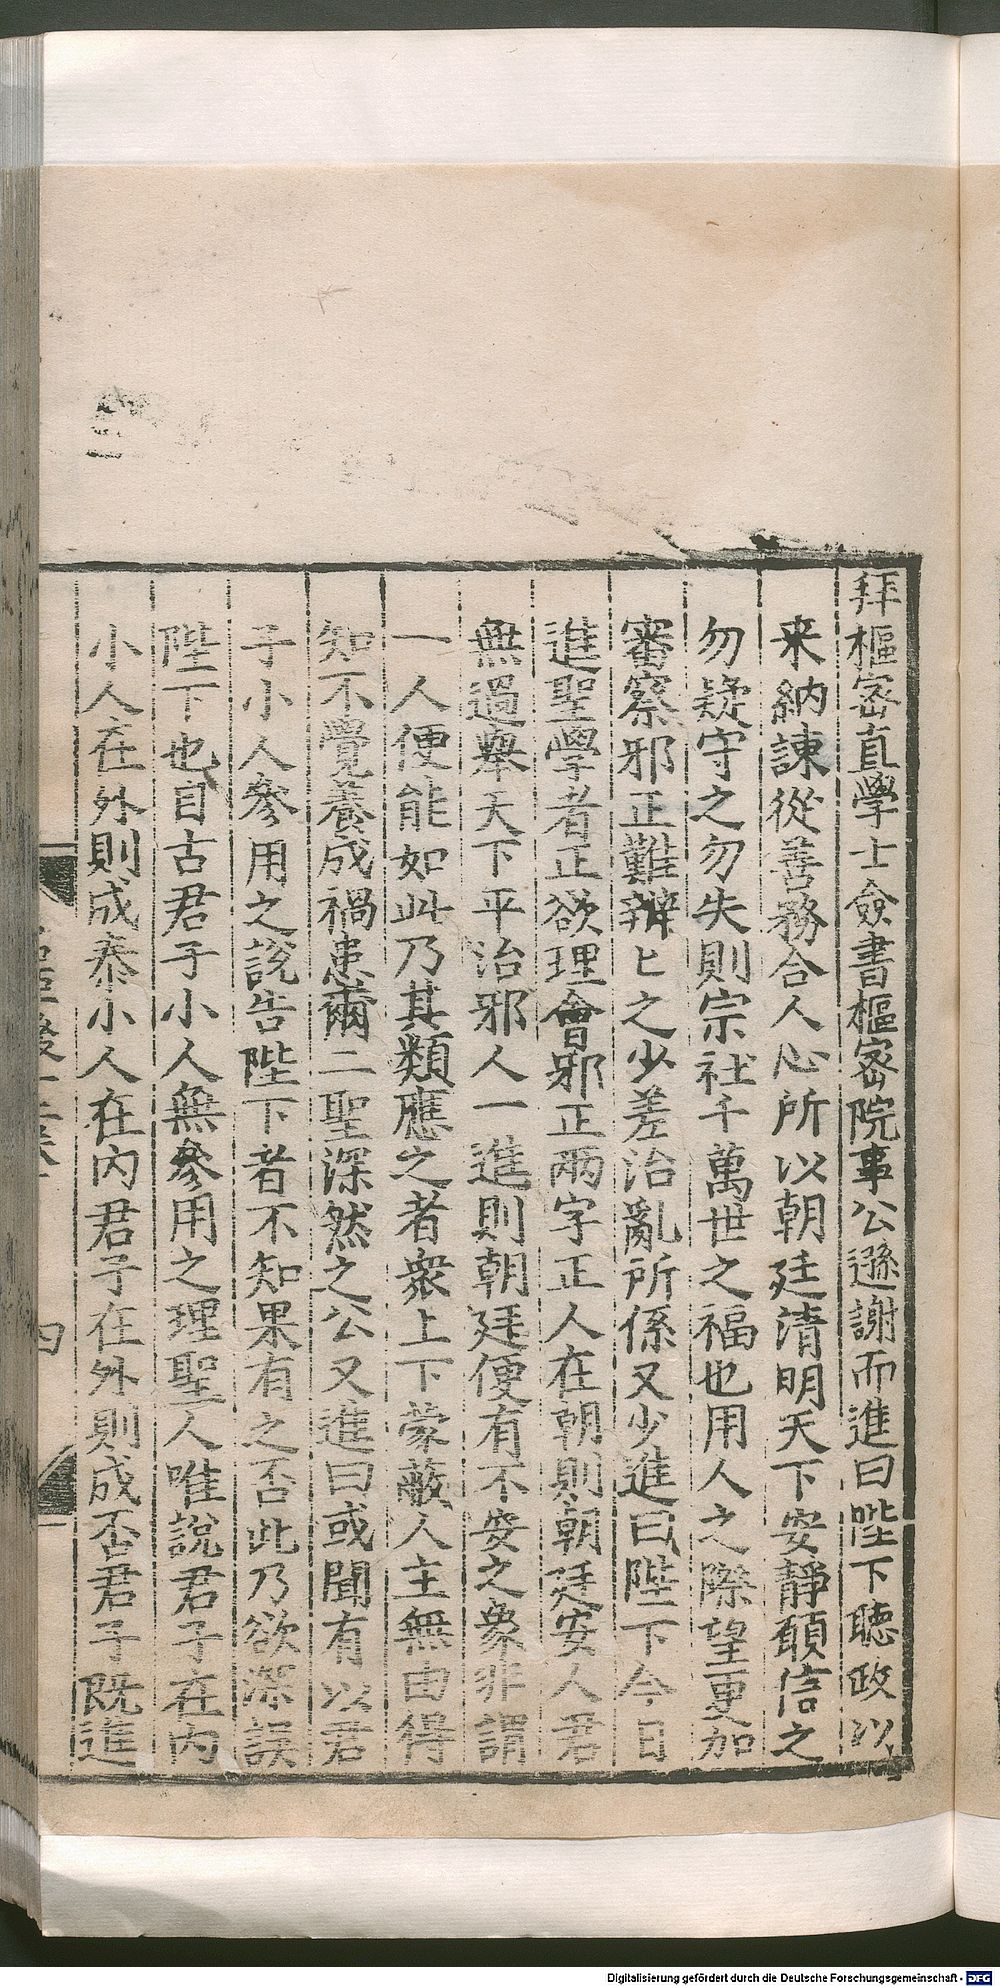 拜樞密直學士僉書樞密院事公遜謝而進曰陛下聽政以
来納諫從善務合人心所以朝廷清明天下安靜願信之
勿疑守之勿失則宗社千萬世之福也用人之際望更加
審察邪正難辯匕之少差治亂所係又少進曰陛下今日
進聖學者正欲理會邪正兩字正人在朝則朝廷安人君
無過舉天下平治邪人一進則朝廷便有不安之象非謂
一人便能如此乃其類應之者衆上下蒙蔽人主無由得
知不覺養成禍患爾二聖深然之公又進曰或聞有以君
子小人參用之說告陛下者不知果有之否此乃欲深誤
陛下也自古君子小人無參用之理聖人唯說君子在内
小人在外則成泰小人在内君子在外則成否君子既進
四
Digitalisierung gefördert durch die Deutsche Forschungsgemeinschaft - DFG